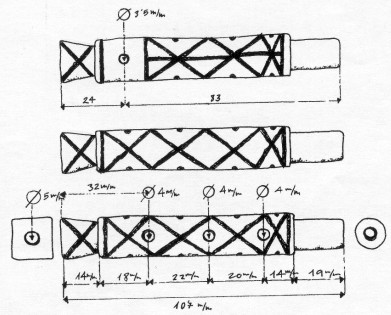 Ø 3'5 m/m
24 83
32 m/m
Ø 5 m/m Ø 4 m/m Ø 4 m/m Ø 4 m/m
14 m/m 18 m/m 22 m/m 20 m/m 14 m/m 19 m/m
107 m/m